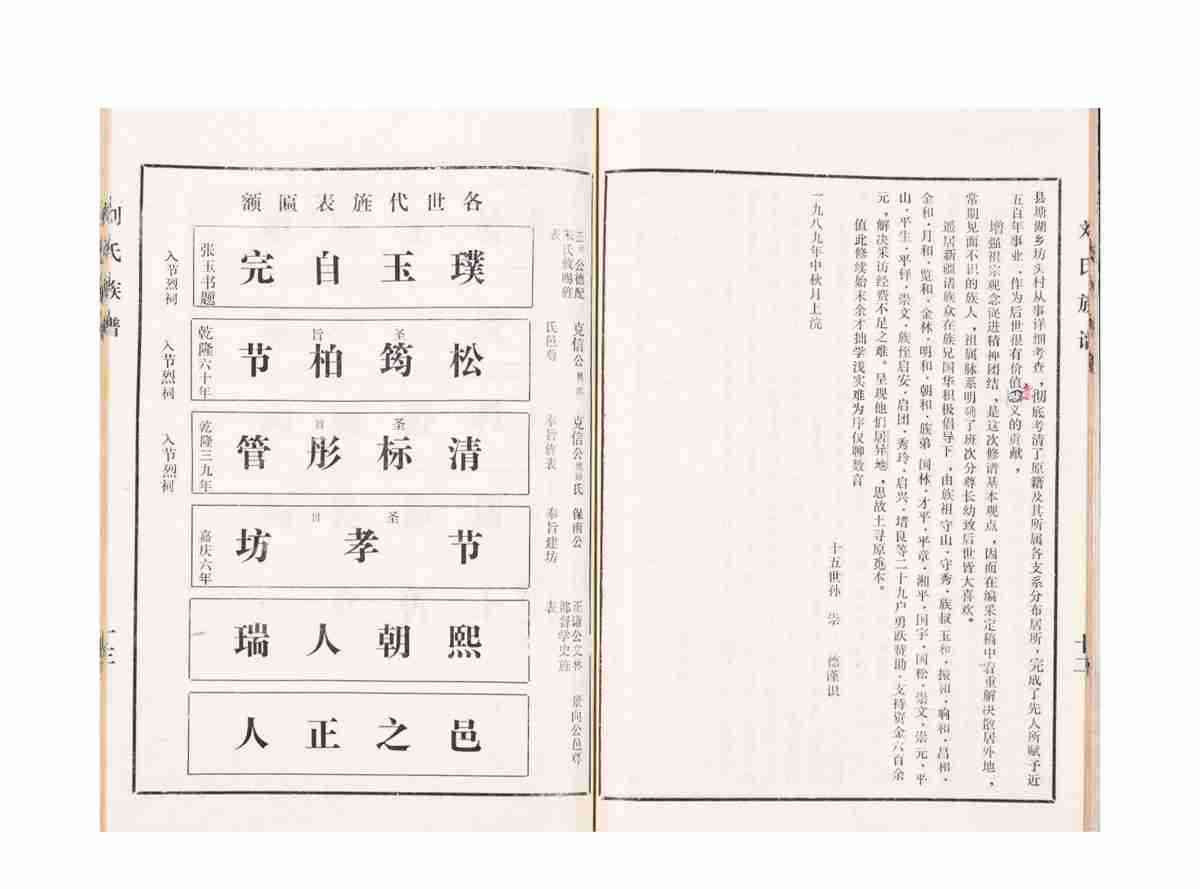 氏族
县塘湖乡坊头村从事详细考查，彻底考清了原籍及其所属各支系分布居所，完成了先人所赋予近
五百年事业、作为后世很有价值义的贡献，
增强祖宗观念促进精神团结，是这次修谱基本观点，因而在编采定稿中着重解决散居外地，
常期见面不识的族人，祖属脉系明确了班次分尊长幼致后世皆大喜欢。
遥居新疆诸族众在族兄国华积极倡导下，由族祖守山·守秀·族叔玉和·振和·响和·昌和·
金和·月和·览和·金林·明和·朝和·族弟国林·才平·平章·湘平·国字·国松·崇文·崇元·平
山·平生·平铎·崇文·族侄启安·启团·秀玲·启兴·堵良等二十九户勇跃赞助·支持资金六百余
元，解决采访经费不足之难。呈现他们居异地，思故土寻原觅本。
值此修续始末余才拙学浅实难为序仅聊数言
十五世孙 崇 德谨识
一九八九年中秋月上浣
十二
各世代旌表匾额
公德配
宋氏敕赐旌
表
璞玉自完
张玉书题
入节烈祠
克信公
氏邑尊
圣旨
松筠柏节
乾隆六十年
入节烈祠
克信公氏
奉旨旌表
圣旨
清标彤管
乾隆三九年
入节烈祠
保南公
奉旨建坊
圣旨
节孝坊
嘉庆六年
正谊公文林
郎督学史旌
表
熙朝人瑞
景向公邑尊
邑之正人
刘氏族谱